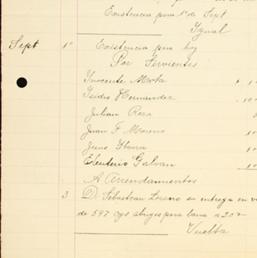 Existencia para 1º de Sept
Igual
Sept 1º Existencia para hoy
Por Sirvientes
Inocente Mota
Isidro Hernandez
Julian Rosa
Juan F Moreno
Juno Ibarra
Eleuterio Galvan
A Arrendamientos
3 D. Sebastian Lozano su entrega en
de 597 cgs abigos para lana a 20
Vuelta